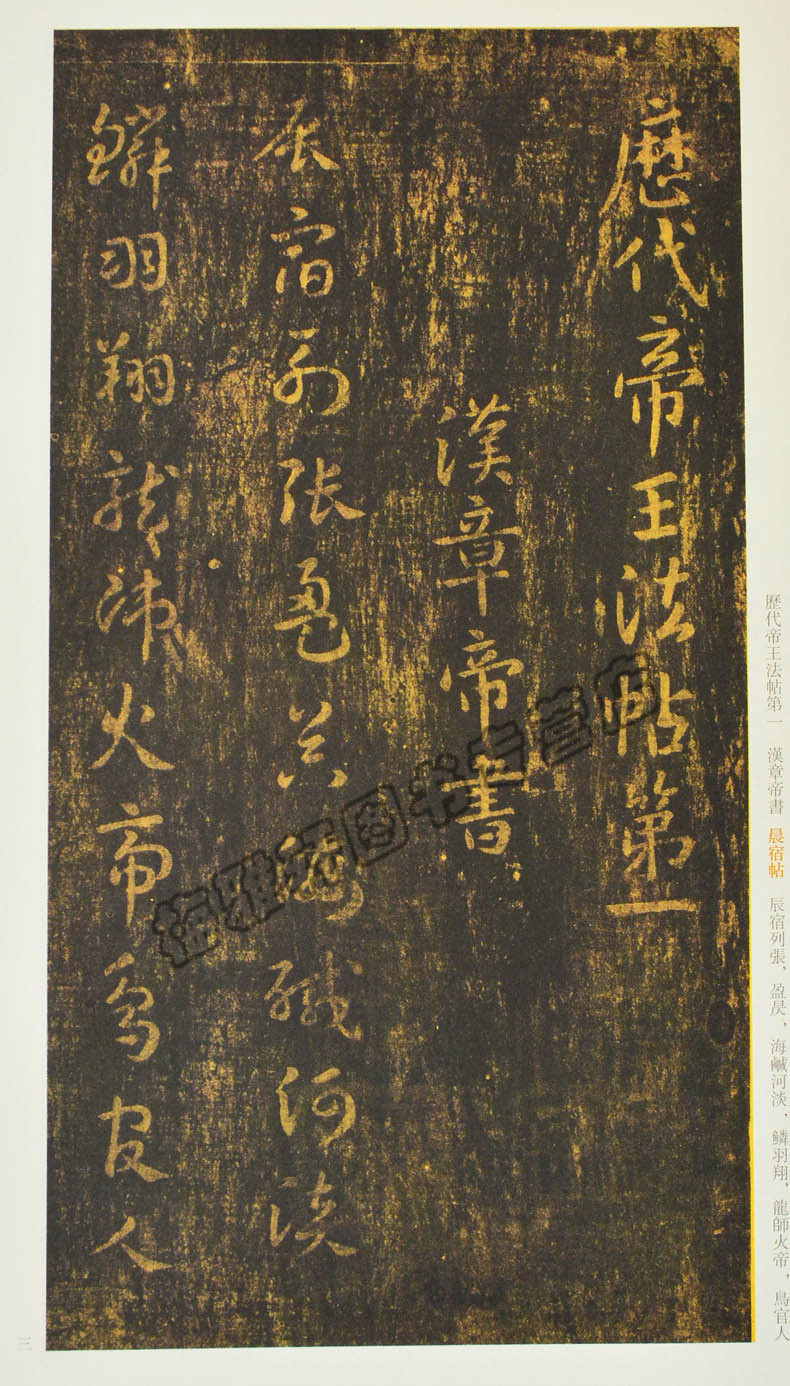 歷代帝王法帖第一　漢章帝書　晨宿帖　辰宿列張，盈昃，海鹹河淡，鳞羽翔，龍師火帝，鳥官人
歷代帝王法帖第一
漢章帝書
辰宿列張盈昃海鹹河淡
鱗羽翔龍師火帝鳥官人
雅
图书专营店
三